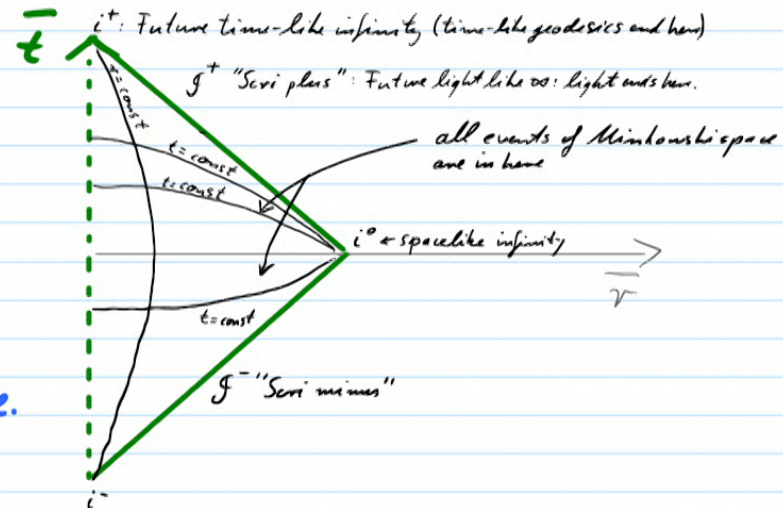 t̄
i⁺: Future time-like infinity (time-like geodesics end here)
r=const
𝓘⁺ "Scri plus": Future light like ∞: light ends here.
t=const
all events of Minkowski space
are in here
t=const
i⁰ ← spacelike infinity
r̄
t=const
𝓘⁻ "Scri minus"
e.
i⁻